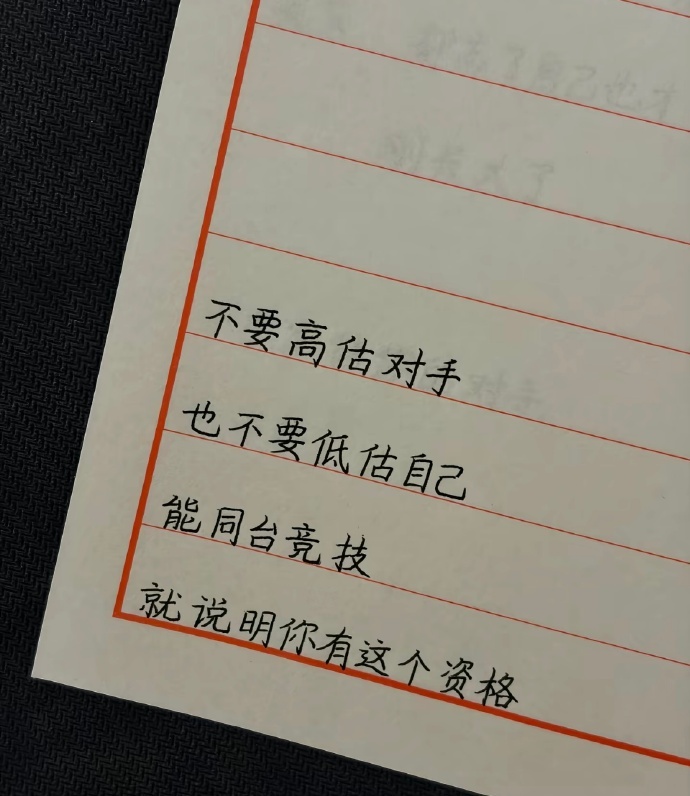 不要高估对手
也不要低估自己
能同台竞技
就说明你有这个资格